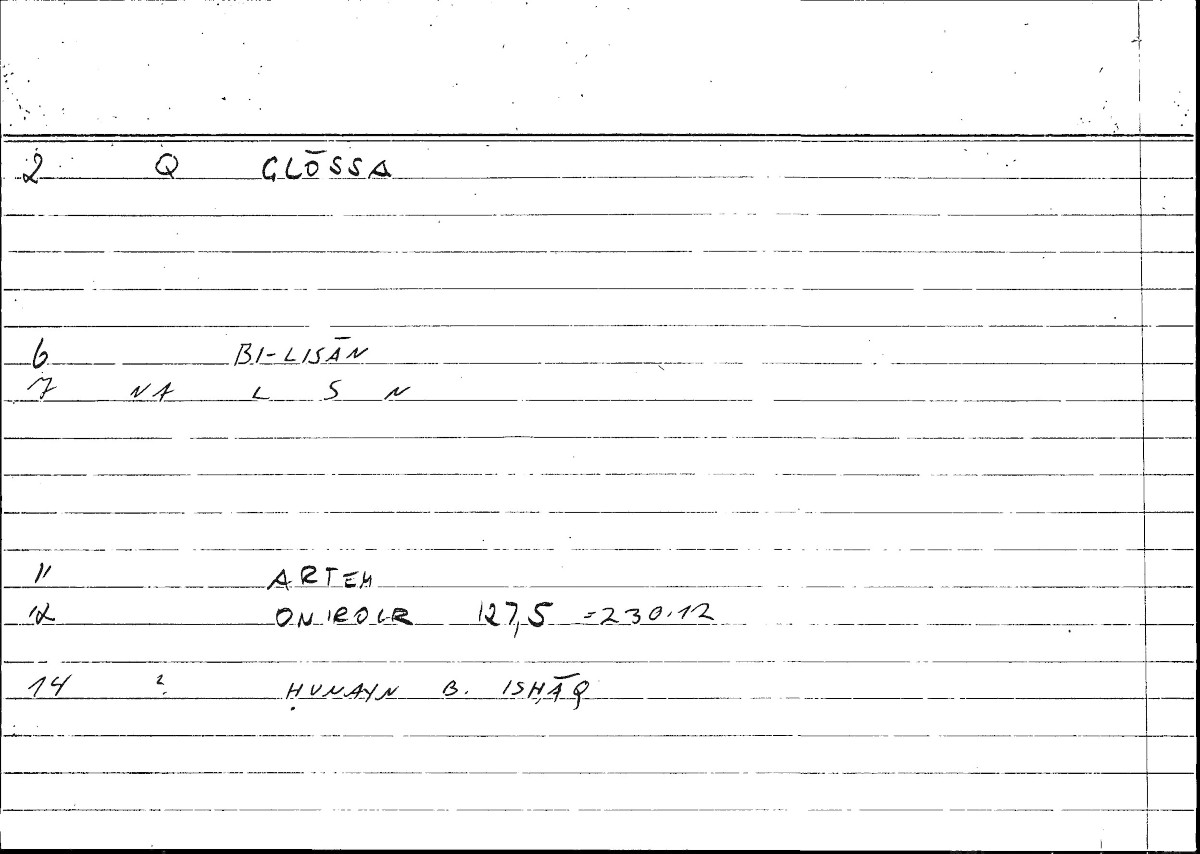 2 Q GLŌSSA
6 BI-LISĀN
7 NA L S N
11 ARTEM
12 ONIROCR 127,5 =230.12
14 ? ḤUNAYN B. ISḤĀQ